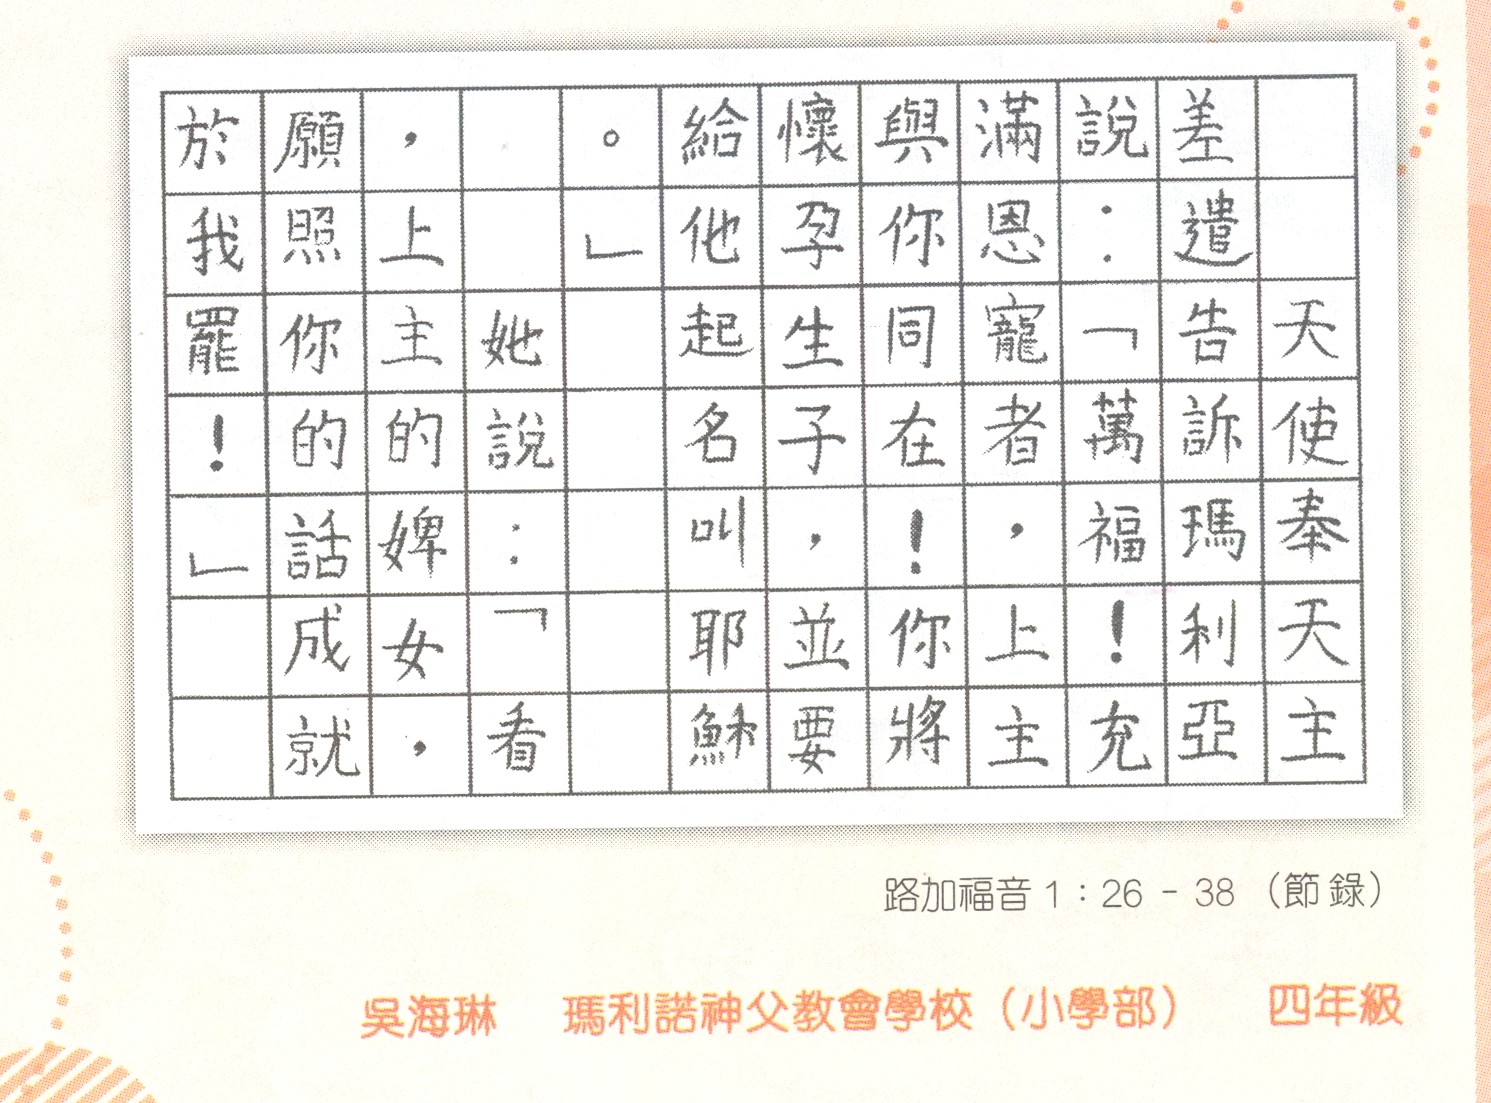 天使奉天主
差遣告訴瑪利亞
說：「萬福！充
滿恩寵者，上主
與你同在！你將
懷孕生子，並要
給他起名叫耶穌
。」
她說：「看
，上主的婢女，
願照你的話成就
於我罷！」
路加福音1：26 - 38（節錄）
吳海琳 瑪利諾神父教會學校（小學部） 四年級